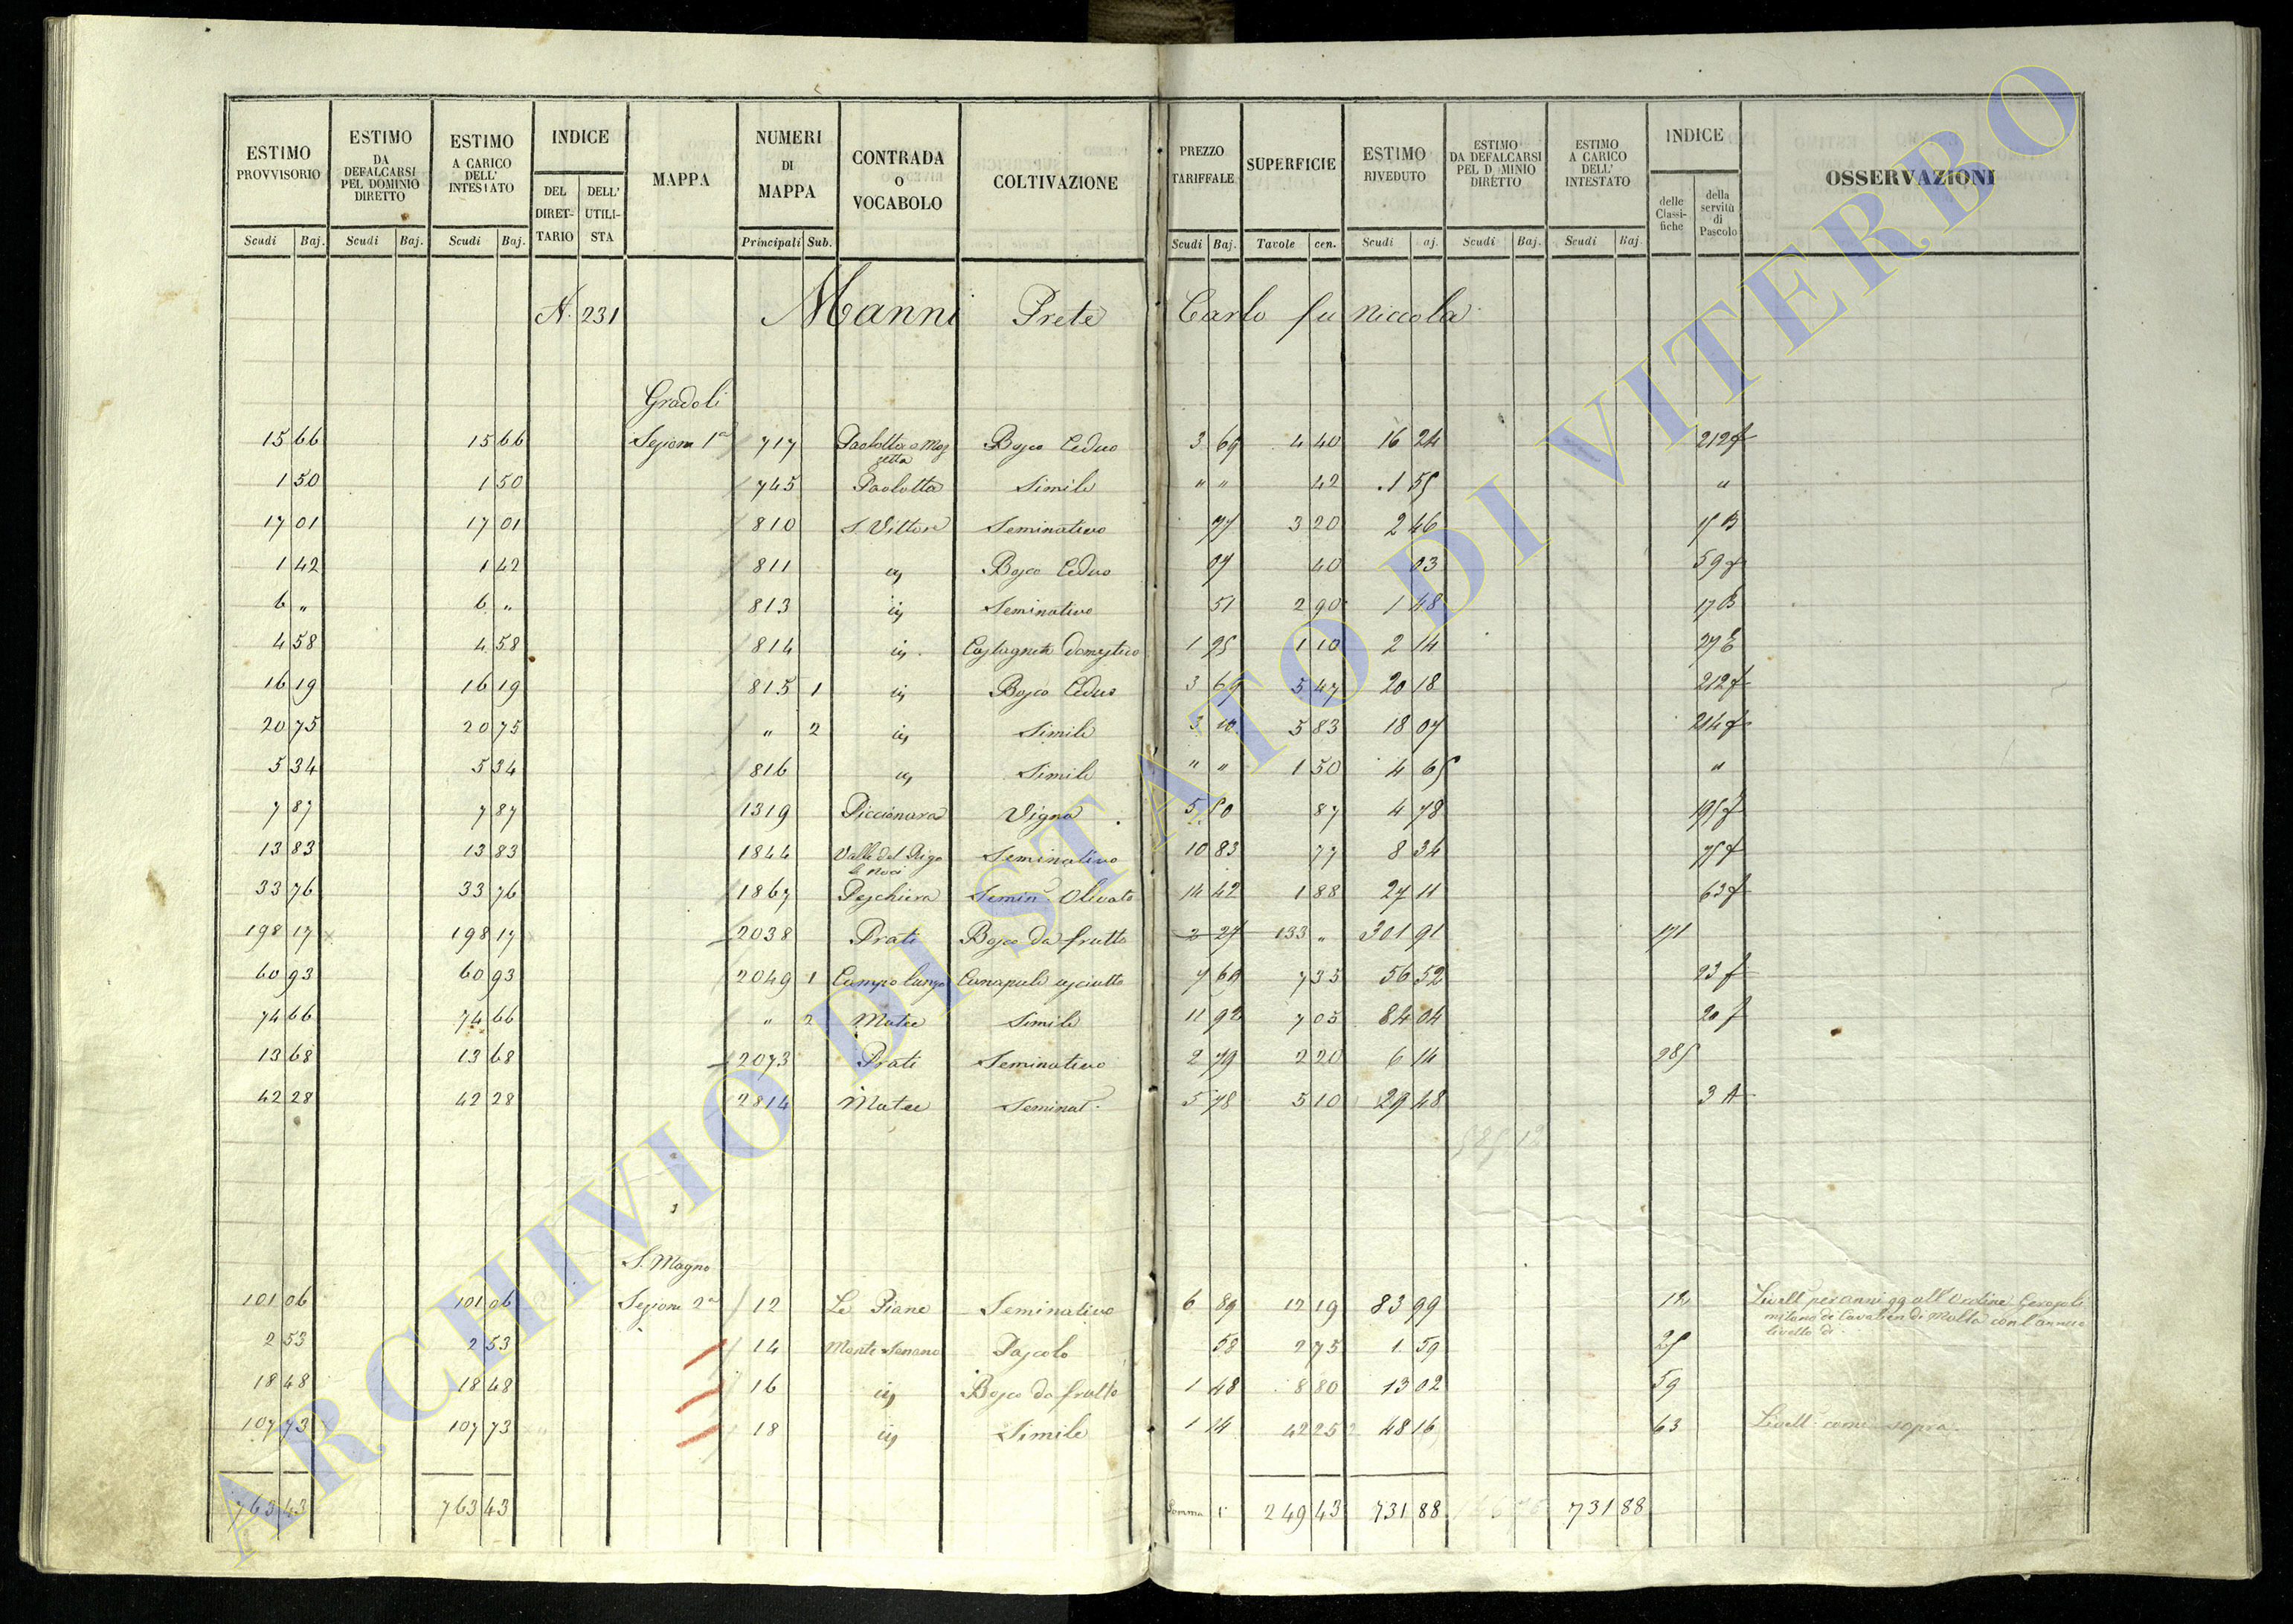 ESTIMO PROVVISORIO ESTIMO DA DEFALCARSI PEL DOMINIO DIRETTO ESTIMO A CARICO DELL' INTESTATO INDICE DEL DIRETTARIO DELL' UTILISTA MAPPA NUMERI DI MAPPA CONTRADA O VOCABOLO COLTIVAZIONE PREZZO TARIFFALE SUPERFICIE ESTIMO RIVEDUTO ESTIMO DA DEFALCARSI PEL D MINIO DIRETTO ESTIMO A CARICO DELL' INTESTATO INDICE delle Classifiche della servitù di Pascolo OSSERVAZIONI
Scudi Baj. Scudi Baj. Scudi Baj. Principali Sub. Scudi Baj. Tavole cen. Scudi aj. Scudi Baj. Scudi Baj
N. 231 Manni Prete Carlo fu Niccola
Gradoli
15 66 15 66 Sezione 1a 717 Paolotta o Mazzetta Bosco Ceduo 3 69 4 40 16 24 212 f
1 50 1 50 745 Paolotta Simile " " 42 1 55 "
17 01 17 01 810 S. Vittore Seminativo 77 3 20 2 46 B
1 42 1 42 811 Bosco Ceduo 07 40 03 59
6 " 6 " 813 Seminativo 51 2 90 1 48 17 B
4 58 4 58 814 Castagneto domestico 1 95 1 10 2 14 27 E
16 19 16 19 815 1 Bosco Ceduo 3 69 5 47 20 18 212 f
20 75 20 75 " 2 Simile 3 10 5 83 18 07 214 f
5 34 5 34 816 Simile " " 1 50 4 65 "
7 87 7 87 1319 Piccionara Vigna 5 50 87 4 78
13 83 13 83 1844 Valle del Rigo le Noci Seminativo 10 83 77 8 34
33 76 33 76 1867 Peschiera Semin. Olivato 14 42 1 88 27 11 63 f
198 17 198 17 2038 Prati Bosco da frutto 2 27 133 " 301 91 171
60 93 60 93 2049 1 Campo lungo Canapule asciutto 7 69 7 35 56 52 23 f
74 66 74 66 " 2 Matee Simile 11 92 7 05 84 04 20 f
13 68 13 68 2073 Prati Seminativo 2 79 2 20 6 14 285
42 28 42 28 2814 Matee Seminat. 5 78 5 10 29 48 3 A
S. Magno
101 06 101 06 Sezione 2a 12 Le Piane Seminativo 6 89 12 19 83 99 12 Livell. per anni 99 all'Ordine Gerosolimitano di Cavalieri di Malta con l'annuo livello di
2 53 2 53 14 Monte Senano Pascolo 58 2 75 1 59 25
18 48 18 48 16 Bosco da frutto 1 48 8 80 13 02 59
107 73 107 73 18 Simile 1 14 42 25 48 16 63 Livell. come sopra.
763 43 763 43 Somma 249 43 731 88 731 88
ARCHIVIO DI STATO DI VITERBO